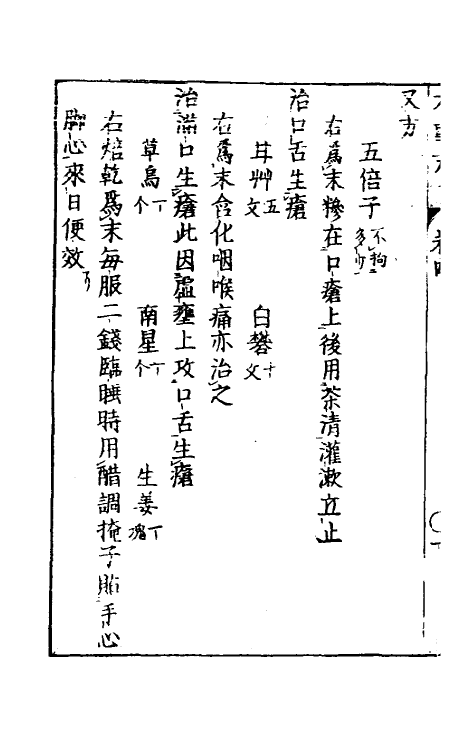 又方
五倍子不拘多少
右爲末糝在口瘡上後用茶清灌漱立止
治口舌生瘡
甘艸五文
白礬十文
右爲末含化咽喉痛亦治之
治滿口生瘡此因虛壅上攻口舌生瘡
草烏一个
南星一个
生姜一塊
右焙乾爲末每服二錢臨睡時用醋調掩子貼手心
脚心來日便效